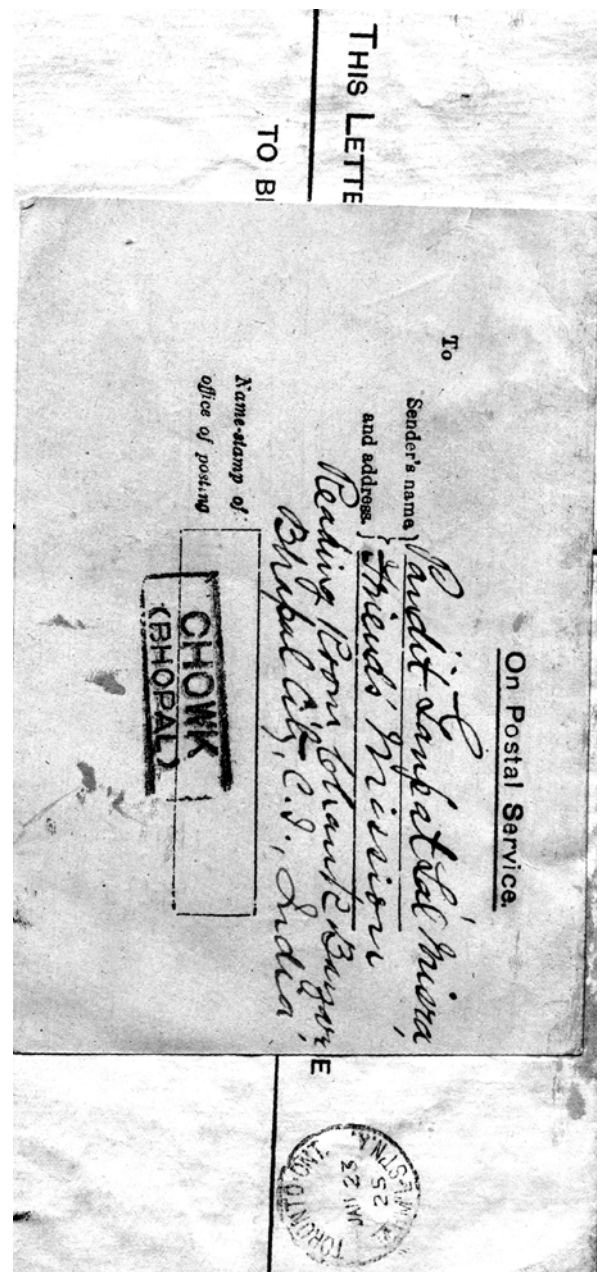 THIS LETTE
TO BE
On Postal Service.
To
Sender's name
and address.
Pandit Sampat Lal Misra,
Friends' Mission
Reading Room, Chauk Bazar,
Bhopal City, C.I., India
Name-stamp of
office of posting
CHOWK
(BHOPAL)
E
TORONTO, ONT.
JAN 23
25